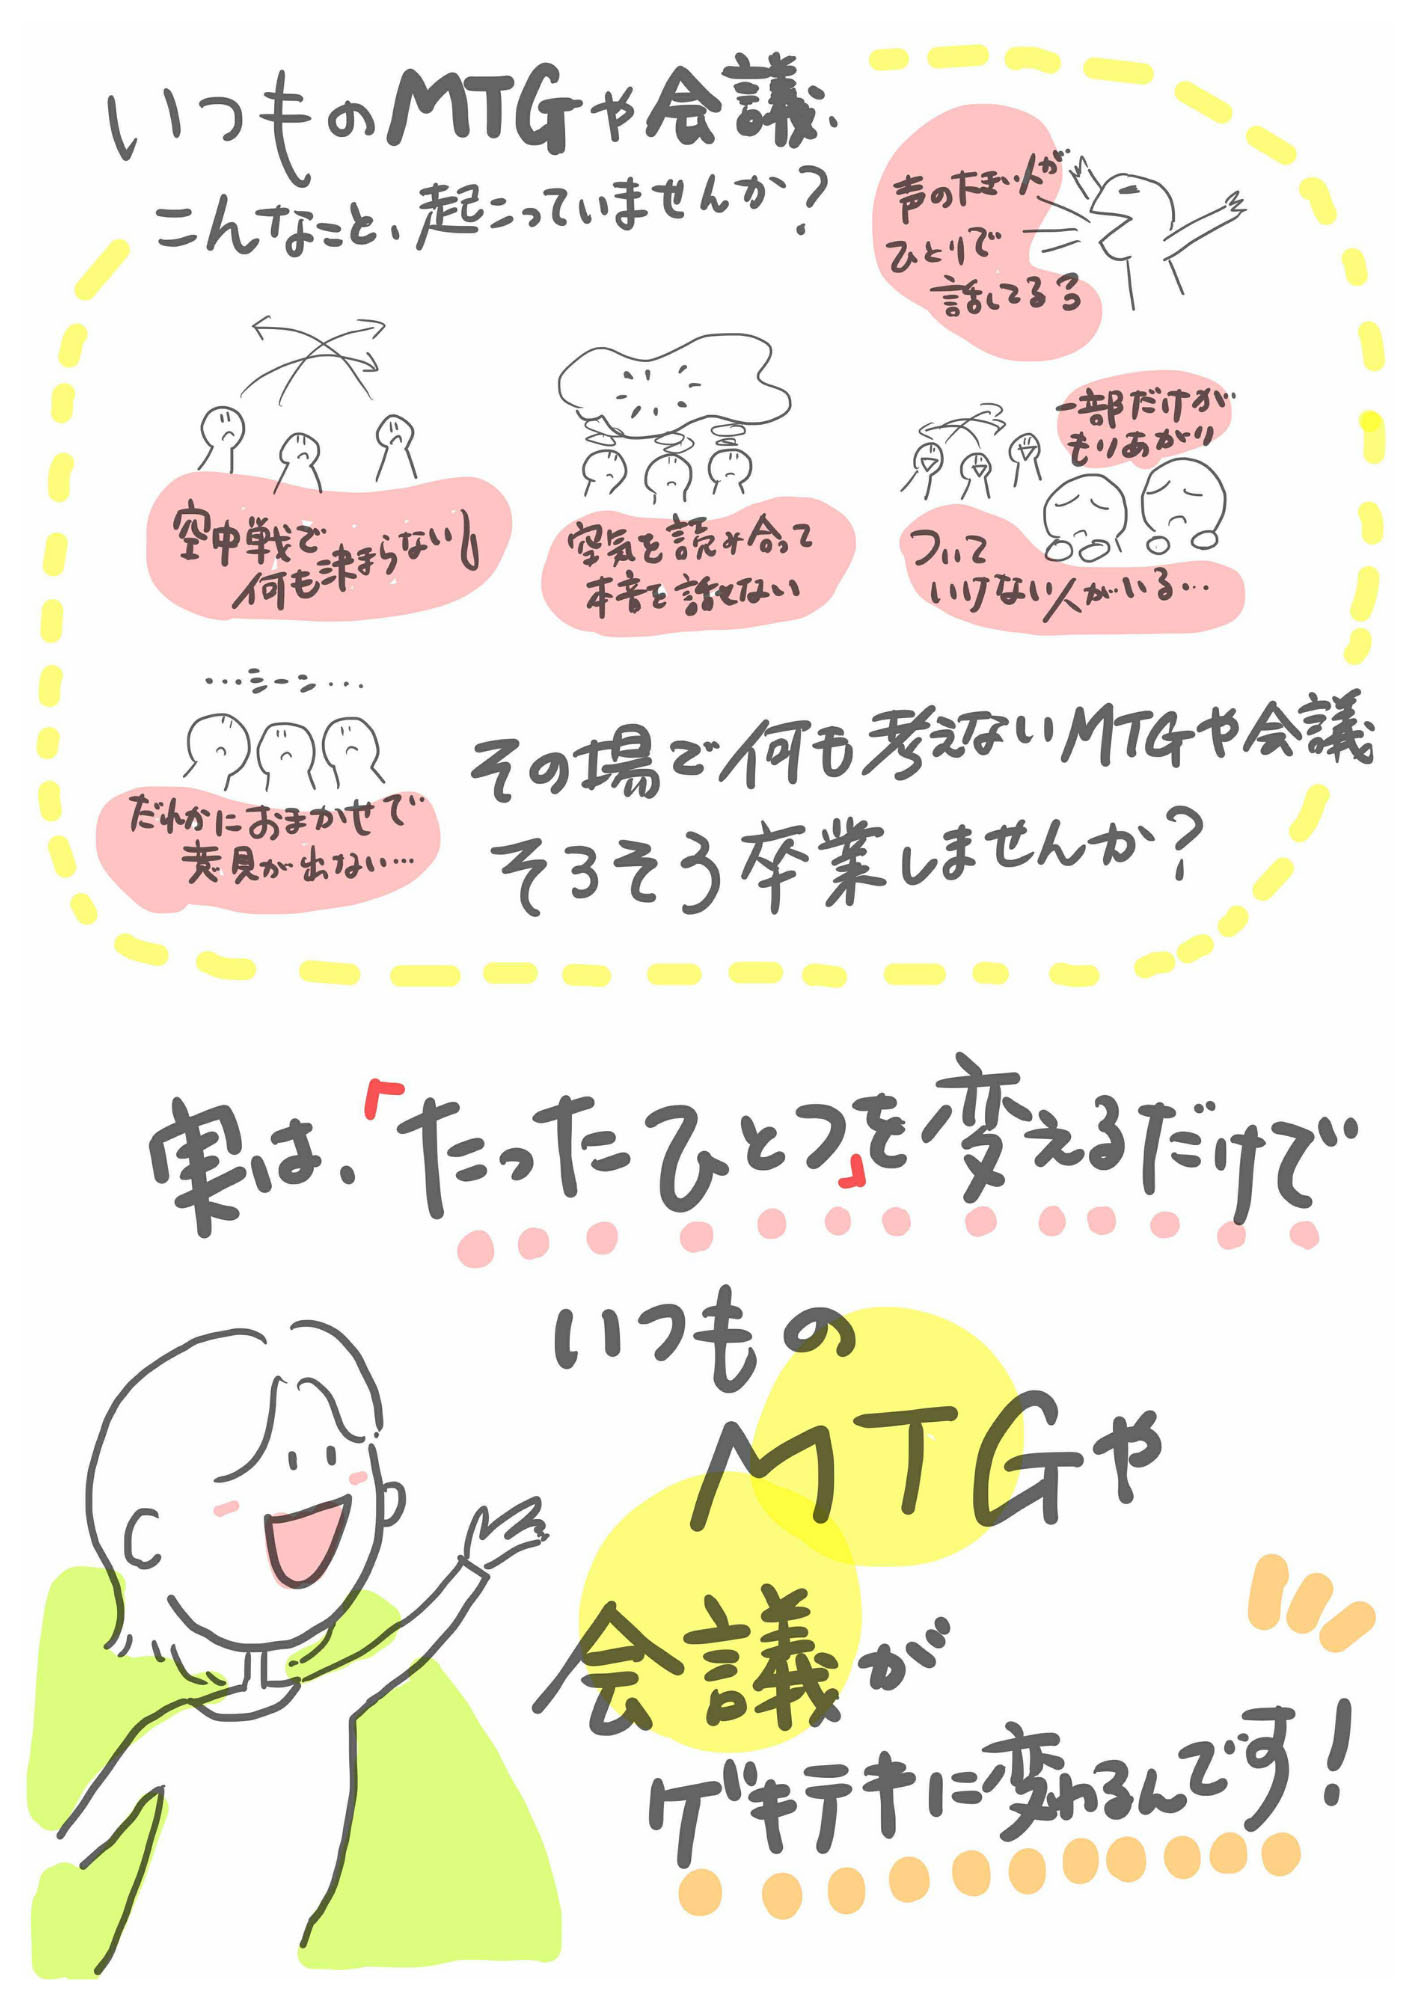 いつものMTGや会議、
こんなこと、起こっていませんか？
声の大きい人が
ひとりで
話してるる
空中戦で
何も決まらない
空気を読み合って
本音を話せない
一部だけが
もりあがり
ついて
いけない人がいる…
…シーン…
だれかにおまかせで
意見が出ない…
その場で何も考えないMTGや会議
そろそろ卒業しませんか？
実は、「たったひとつ」を変えるだけで
いつもの
MTGや
会議が
ゲキテキに変わるんです！